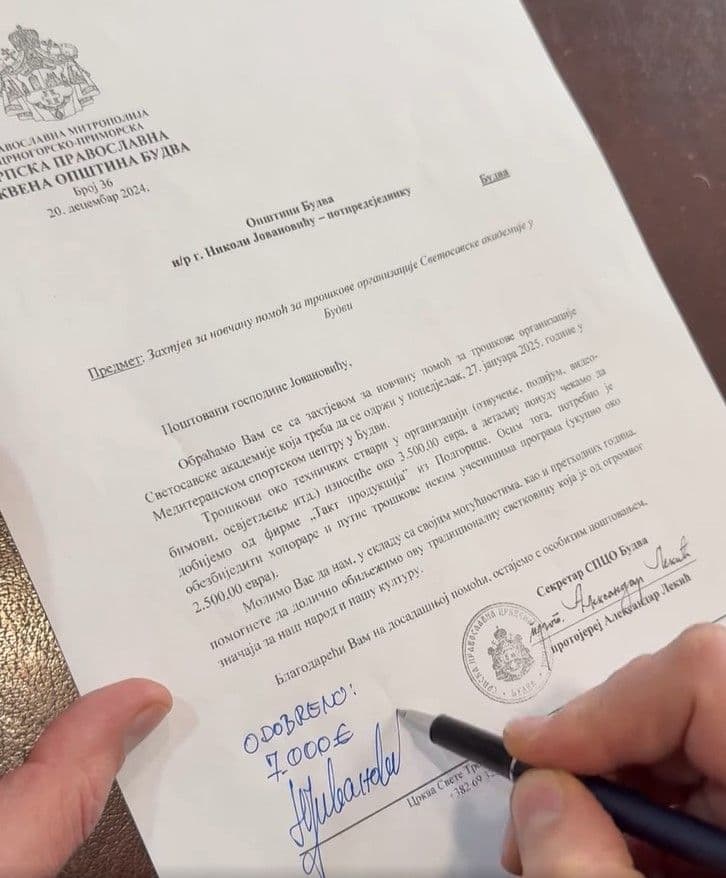 АВОСЛАВНА МИТРОПОЛИЈА
ЦРНОГОРСКО-ПРИМОРСКА
РПСКА ПРАВОСЛАВНА
КВЕНА ОПШТИНА БУДВА
Број 36
20. децембар 2024.
Будва
Општини Будва
н/р г. Николи Јовановићу – потпредсједнику
Предмет: Захтјев за новчану помоћ за трошкове организације Светосавске академије у
Будви
Поштовани господине Јовановићу,
Обраћамо Вам се са захтјевом за новчану помоћ за трошкове организације
Светосавске академије која треба да се одржи у понедјељак, 27. јануара 2025. године у
Медитеранском спортском центру у Будви.
Трошкови око техничких ствари у организацији (озвучење, подијум, видео-
бимови, освјетљење итд.) износиће око 3.500,00 евра, а детаљну понуду чекамо да
добијемо од фирме „Такт продукција" из Подгорице. Осим тога, потребно је
обезбиједити хонораре и путне трошкове неким учесницима програма (укупно око
2.500,00 евра).
Молимо Вас да нам, у складу са својим могућностима, као и претходних година,
помогнете да долично обиљежимо ову традиционалну светковину која је од огромног
значаја за наш народ и нашу културу.
Благодарећи Вам на досадашњој помоћи, остајемо с особитим поштовањем,
Секретар СПЦО Будва
Александар Лекић
протојереј Александар Лекић
ODOBRENO!
7.000€
Црква Свете
+382 69